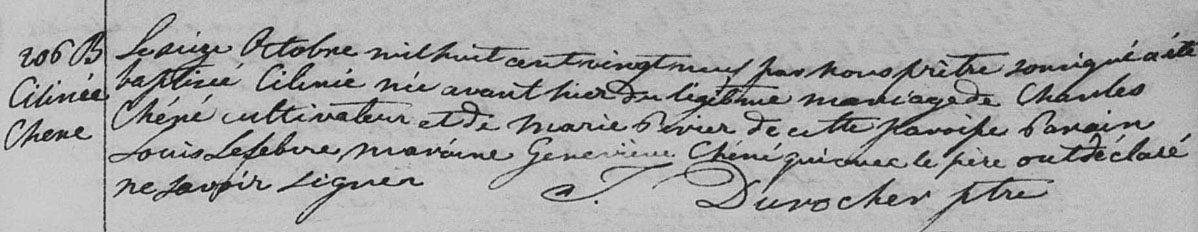 206 B
Cilinée
Chene
Le seize Octobre mil huit cent vingt neuf par nous prêtre soussigné a été
baptisée Cilinie née avant hier du légitime mariage de Charles
Chéné cultivateur et de Marie Pivier de cette paroisse Parain
Louis Lefebvre maraine Geneviève Chéné qui avec le père ont déclaré
ne savoir signer
J. Durocher ptre